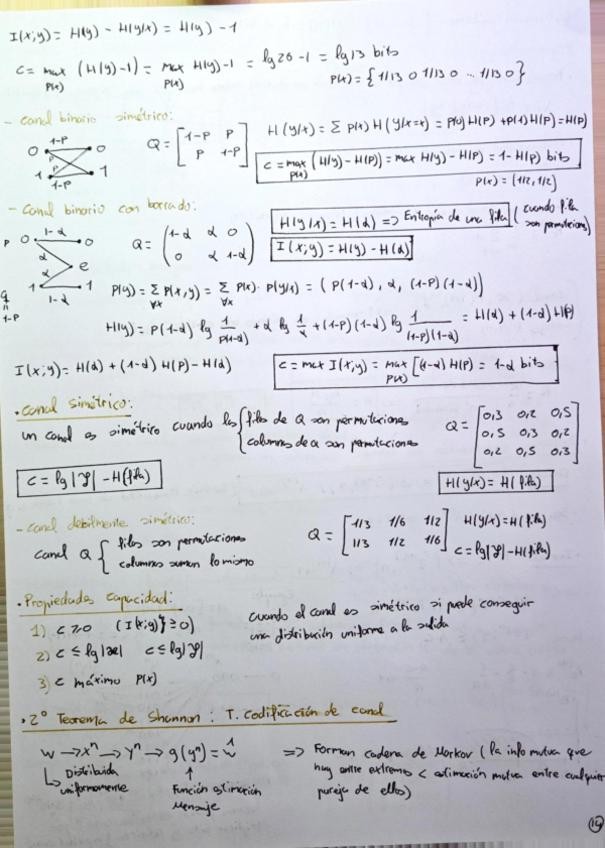 I(x;y) = H(y) - H(y/x) = H(y) - 1
C = max P(x) (H(y)-1) = max P(x) H(y)-1 = lg26 -1 = lg13 bits
P(x) = {1/13 0 1/13 0 ... 1/13 0}
- Canal binario simétrico:
0 1-P 0
1 1-P 1
Q = [1-P P
P 1-P]
H(y/x) = Σ P(x) H(y/x=x) = P(0) H(P) + P(1) H(P) = H(P)
C = max P(x) (H(y) - H(P)) = max H(y) - H(P) = 1 - H(P) bits
P(x) = (1/2, 1/2)
- Canal binario con borrado:
P 0 1-α 0
α
α e
q = 1-P 1 1-α 1
Q = (1-α α 0
0 α 1-α)
H(y/x) = H(α) => Entropía de una fila (cuando fila son permutaciones)
I(x;y) = H(y) - H(α)
P(y) = Σ ∀x P(x,y) = Σ ∀x P(x) · P(y/x) = (P(1-α), α, (1-P)(1-α))
H(y) = P(1-α) lg 1/P(1-α) + α lg 1/α + (1-P)(1-α) lg 1/(1-P)(1-α) = H(α) + (1-α) H(P)
I(x;y) = H(α) + (1-α) H(P) - H(α)
C = max I(x,y) = max P(x) [(1-α) H(P)] = 1-α bits
· Canal simétrico:
un canal es simétrico cuando las { filas de Q son permutaciones
columnas de Q son permutaciones
Q = [0,3 0,2 0,5
0,5 0,3 0,2
0,2 0,5 0,3]
C = lg|Y| - H(fila)
H(y/x) = H(fila)
- Canal debilmente simétrico:
Canal Q { filas son permutaciones
columnas suman lo mismo
Q = [1/3 1/6 1/2
1/3 1/2 1/6]
H(y/x) = H(fila)
C = lg|Y| - H(fila)
· Propiedades capacidad:
1) C ≥ 0 (I(x;y) ≥ 0)
2) C ≤ lg|X| C ≤ lg|Y|
3) C máximo P(x)
Cuando el canal es simétrico si puede conseguir
una distribución uniforme a la salida
· 2º Teorema de Shannon: T. Codificación de canal
W → Xⁿ → Yⁿ → g(yⁿ) = ŵ
Distribuida uniformemente
Función estimación mensaje
=> Forman cadena de Markov (la info mutua que
hay entre extremos < estimación mutua entre cualquier
pareja de ellos)
14